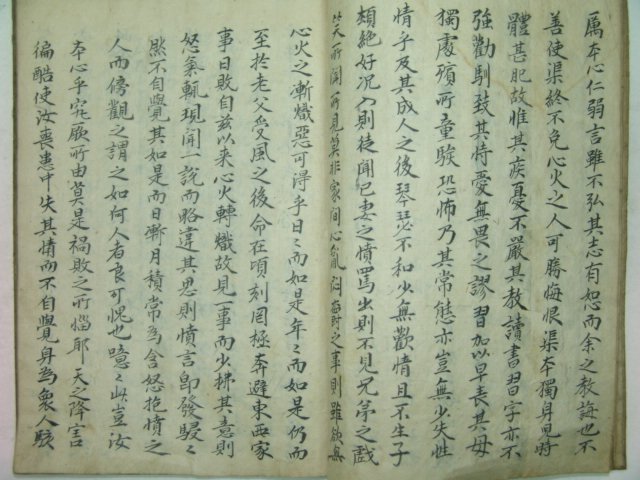 厲本心仁弱言雖不弘其志有恕而余之教誨也不
善使渠終不免心火之人可勝悔恨渠本獨身兒時
體甚肥故惟其疾憂不嚴其教讀書習字亦不
強勸馴致其恃愛無畏之謬習加以早喪其母
獨處殯所童騃恐怖乃其常態亦豈無少失性
情乎及其成人之後琴瑟不和少無歡情且不生子
頹絶好况入則徒聞已妻之憤罵出則不見兄弟之戲
笑所聞所見莫非家間心亂悶 時之事則雖欲無
心火之漸熾惡可得乎日日而如是年年而如是仍而
至於老父受風之後命在頃刻罔極奔避東西家
事日敗自兹以来心火轉熾故見一事而少拂其意則
怒氣輒現聞一說而略違其思則憤言即發駸駸
然不自覺其如是而日漸月積常為含怒抱憤之
人而傍觀之謂之如何人者良可愧也噫噫此豈汝
本心乎究厥所由莫是禍敗之所惱耶天之降害
徧酷使汝喪患中失其情而不自覺身為衆人駭